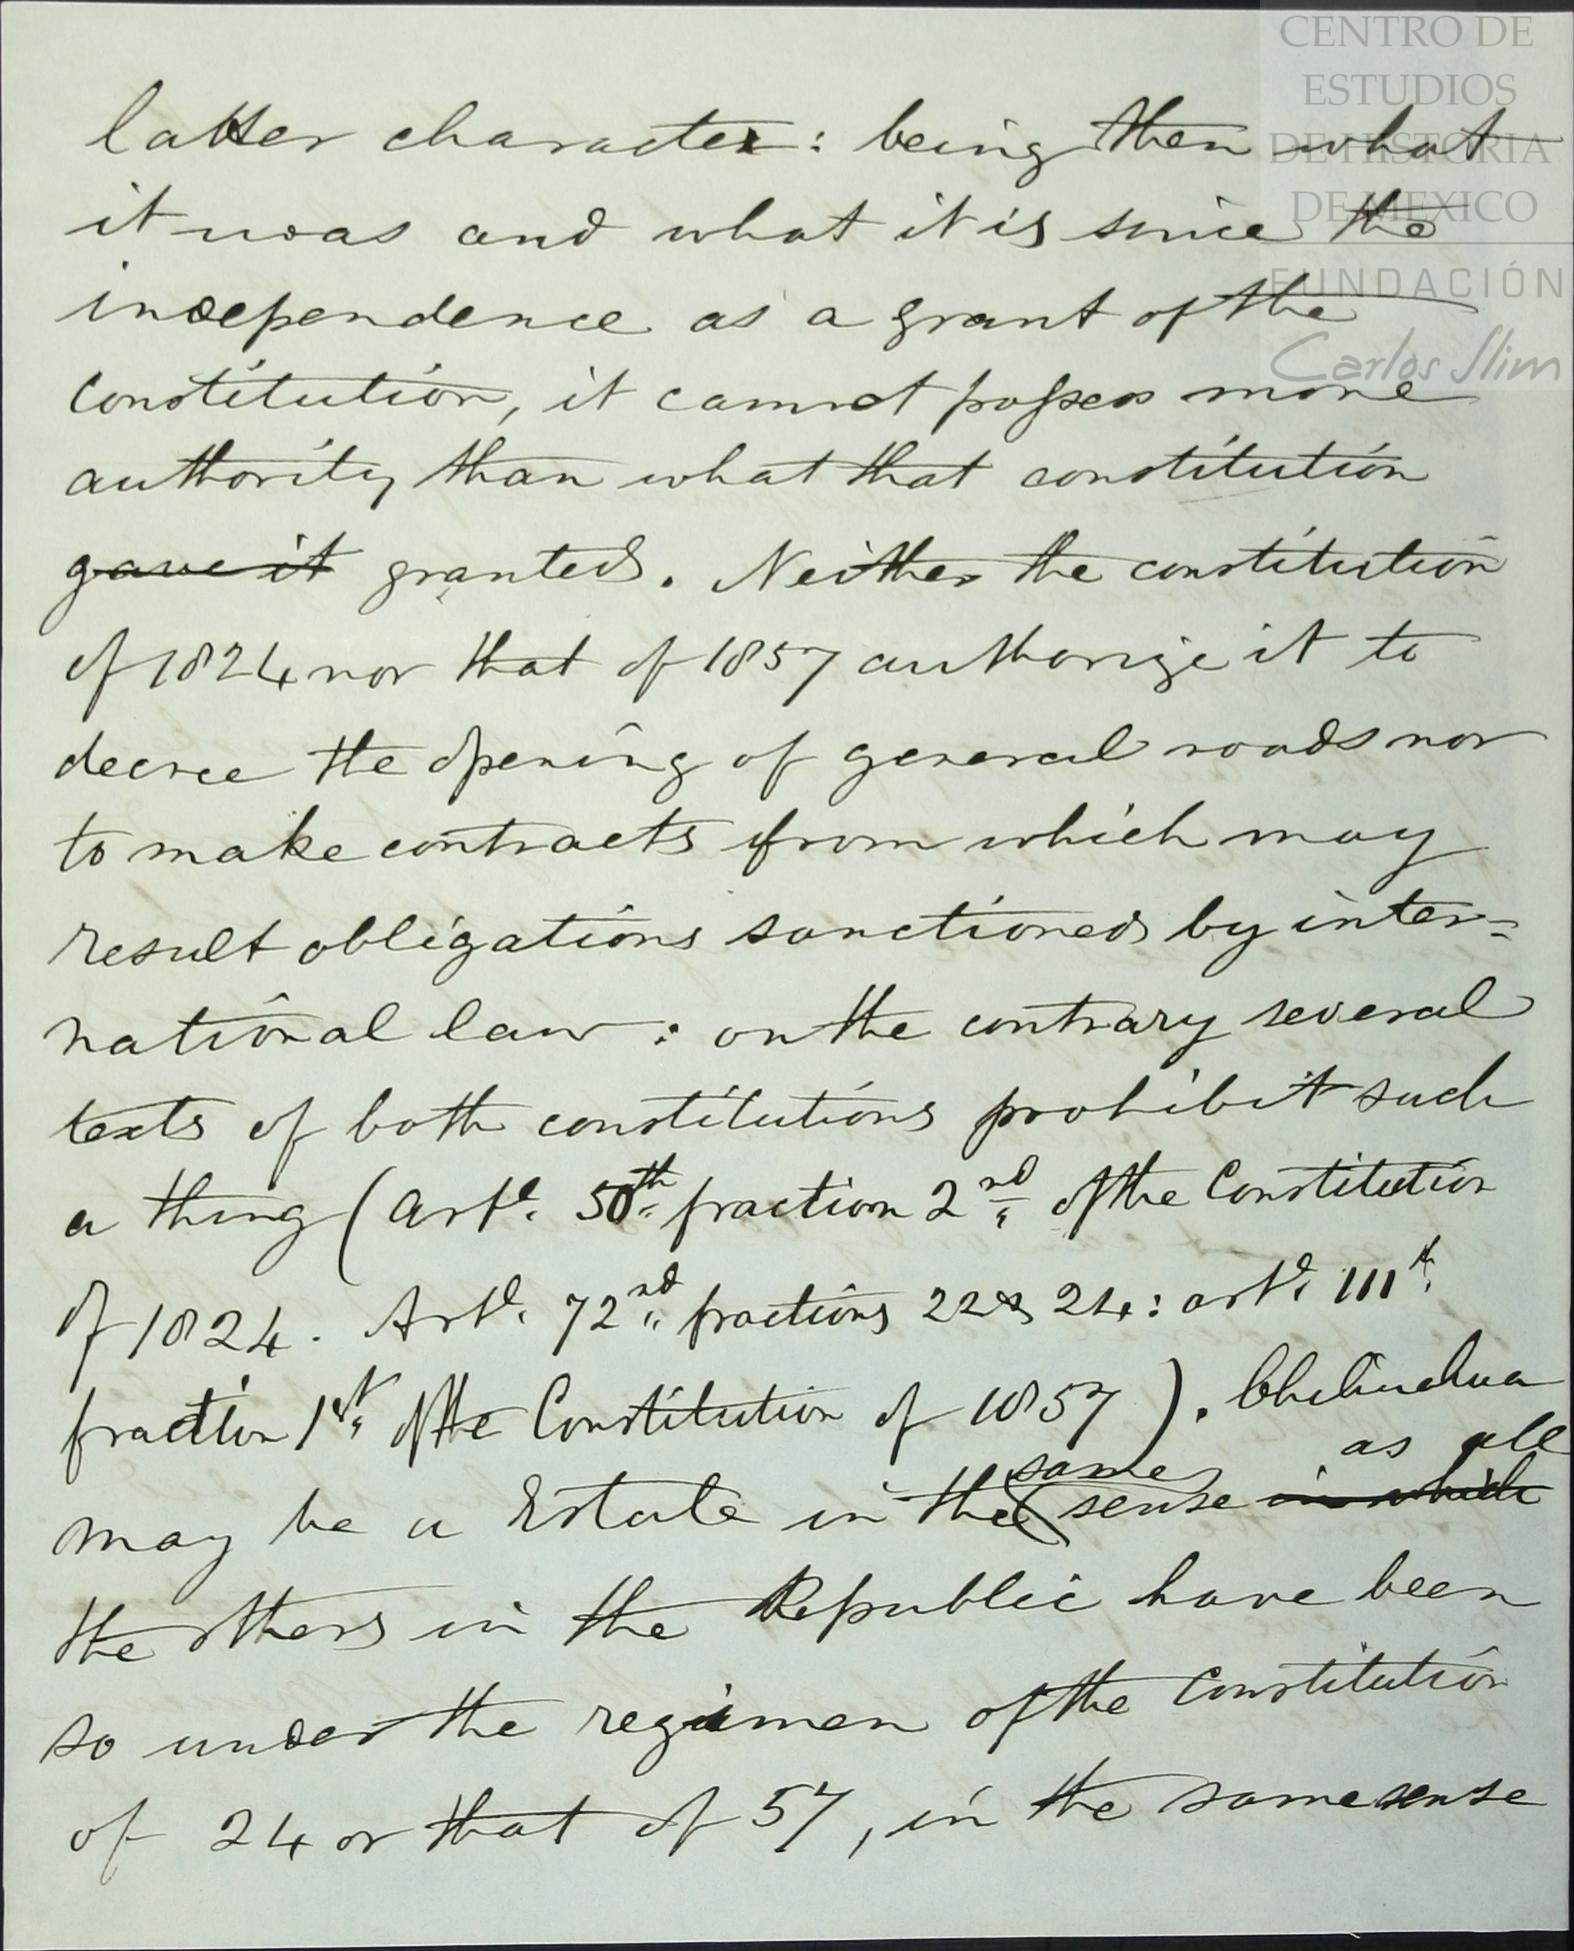 CENTRO DE
ESTUDIOS
DE HISTORIA
DE MEXICO
FUNDACIÓN
Carlos Slim
latter character: being then what
it was and what it is since the
independence as a grant of the
constitution, it cannot possess more
authority than what that constitution
gave it granted. Neither the constitution
of 1824 nor that of 1857 authorize it to
decree the opening of general roads nor
to make contracts from which may
result obligations sanctioned by inter=
national law: on the contrary several
texts of both constitutions prohibit such
a thing (Artº. 50th fraction 2nd of the Constitution
of 1824. Artº. 72nd fractions 22 & 24: artº. 111th
fraction 1st of the Constitution of 1857). Chihuahua
same as all
may be a Estate in the sense in which
the others in the Republic have been
so under the regimen of the Constitution
of 24 or that of 57, in the same sense